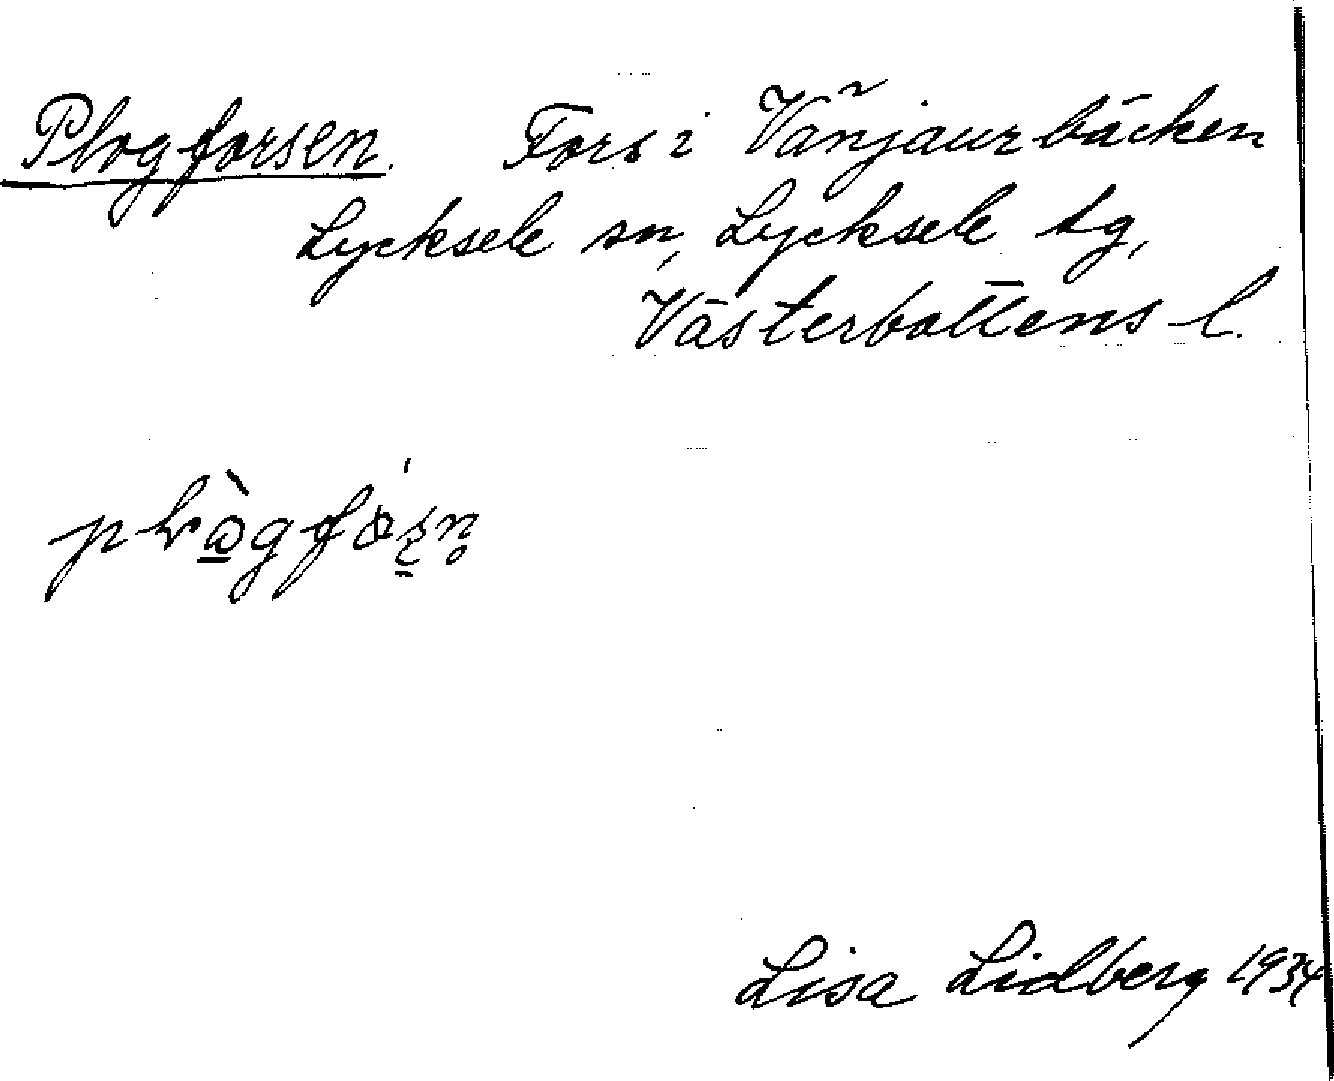 Plogforsen. Fors i Vänjaurbäcken
Lycksele sn, Lycksele tg,
Västerbottens l.
Lisa Lidberg 1934